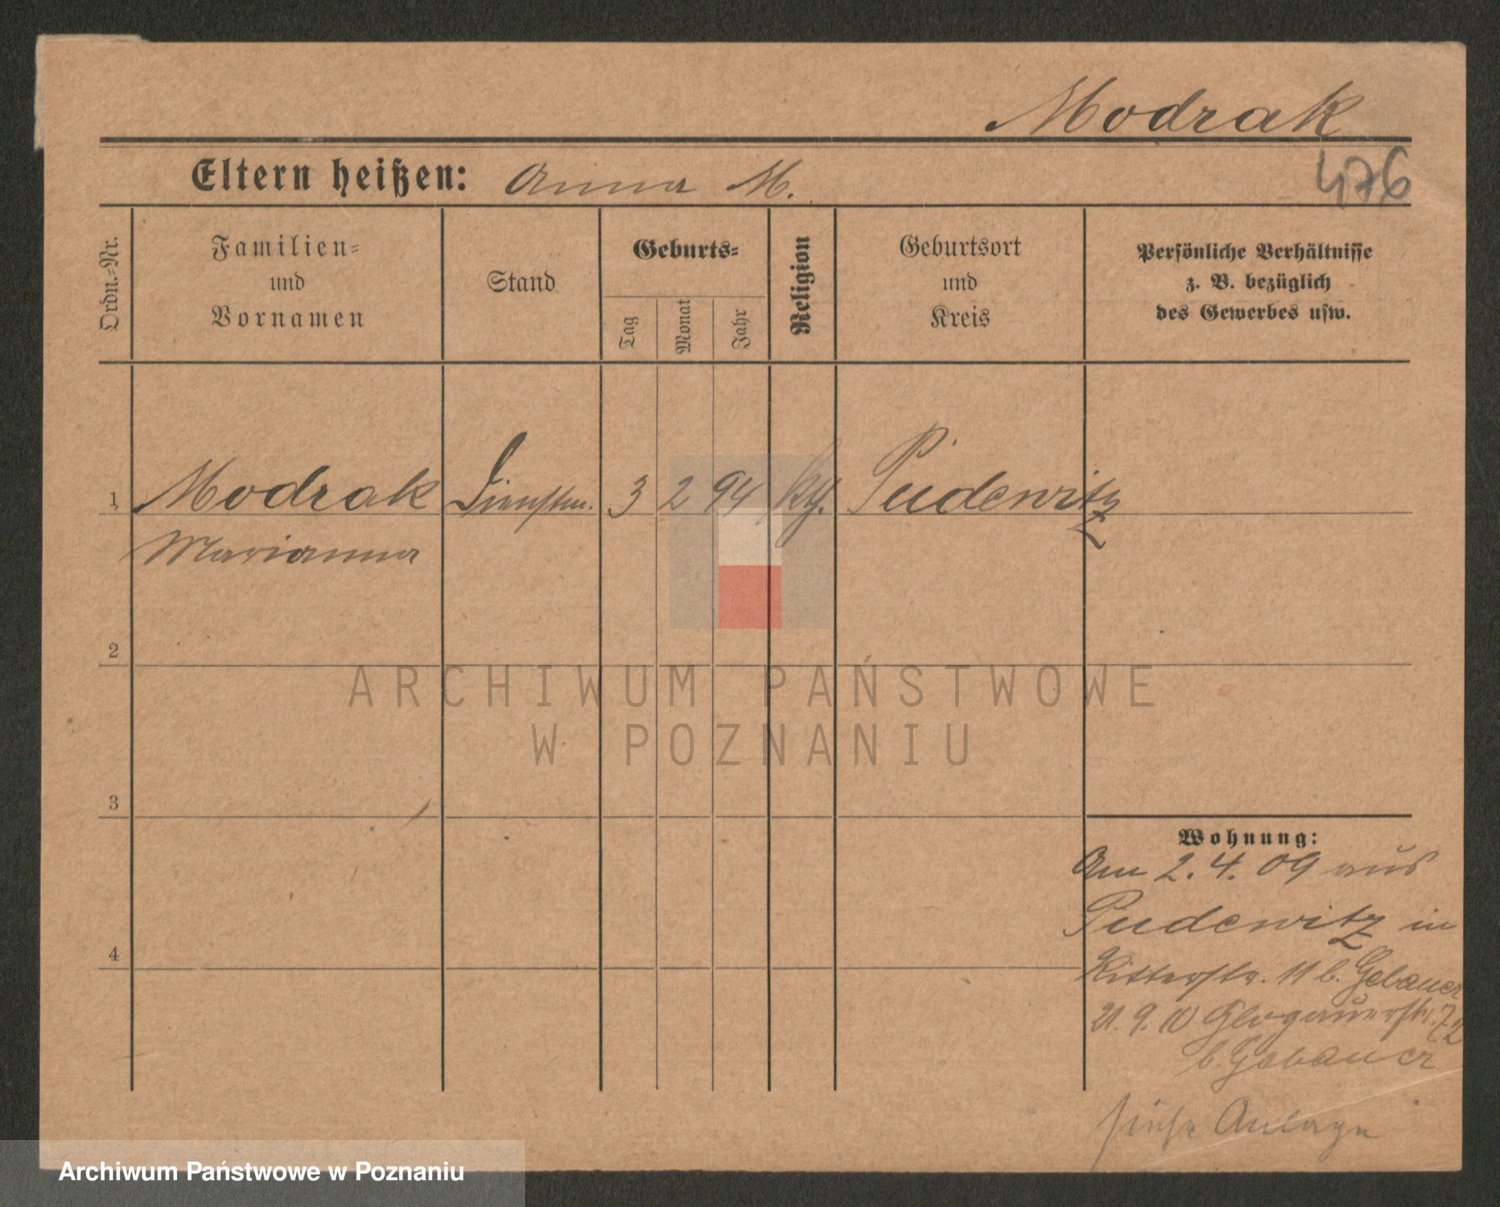 Modrak
Eltern heißen: Anna M.
476
Ordn.-Nr.
Familien-
und
Vornamen
Stand
Geburts-
Tag
Monat
Jahr
Religion
Geburtsort
und
Kreis
Persönliche Verhältnisse
z. B. bezüglich
des Gewerbes usw.
1 Modrak Dienstm. 3 2 94 kth. Pudewitz
Marianna
2
3
4
Wohnung:
Am 2. 4. 09 aus
Pudewitz in
Ritterstr. 11 b. Gebauer
21. 9. 10 Glogauerstr. 72
b. Gebauer
siehe Anlage
ARCHIWUM PAŃSTWOWE
W POZNANIU
Archiwum Państwowe w Poznaniu